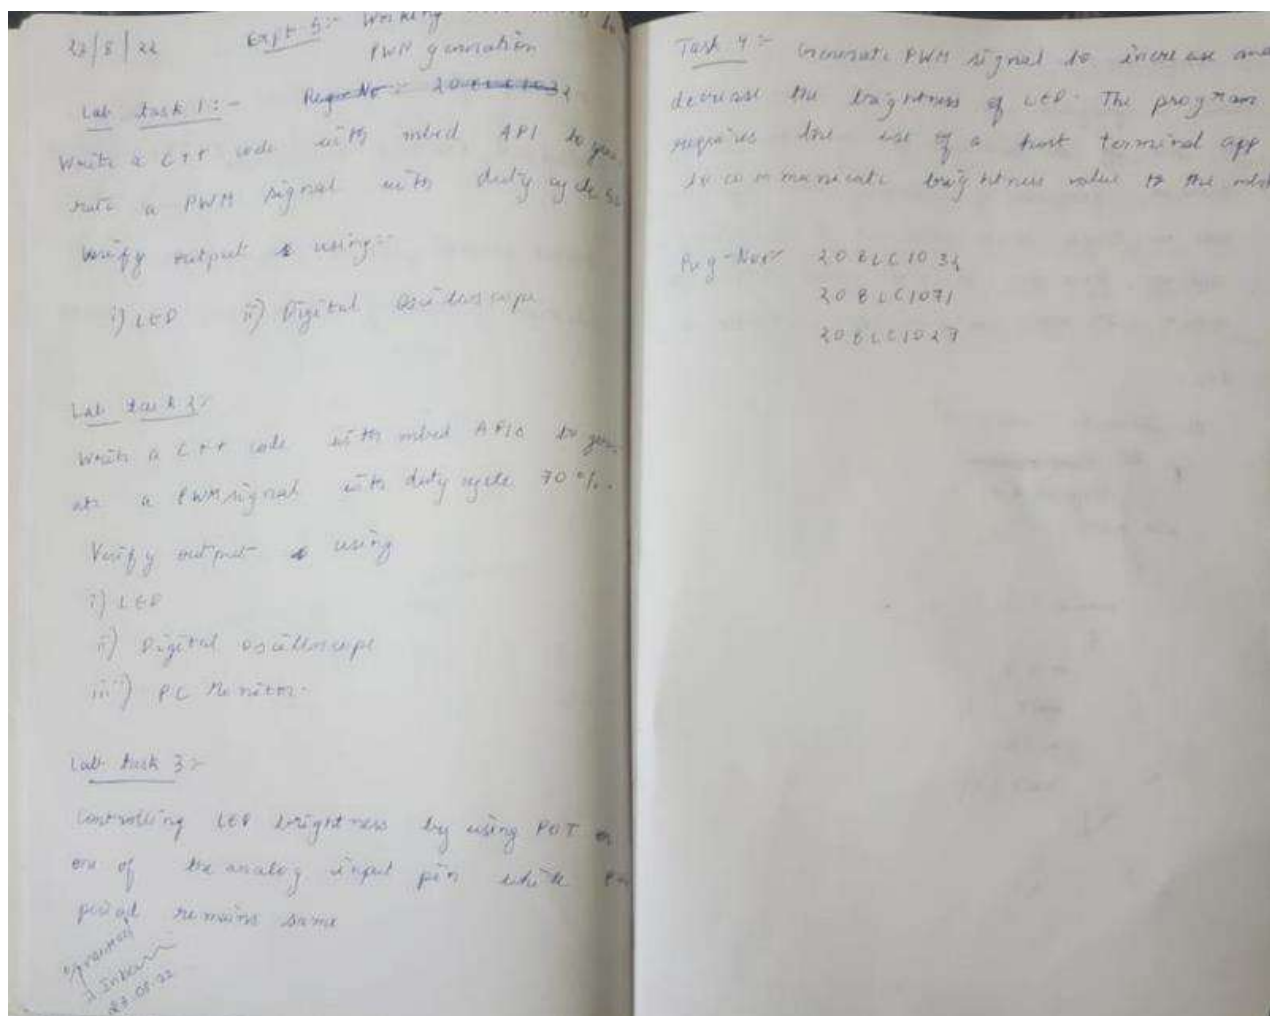 27/8/22 Expt-5:- Working
PWM generation
Reg-No:- 20BLC1032
Lab task 1:-
Write a C++ code with mbed API to gen
rate a PWM signal with duty cycle 50
Verify output using:-
i) LED ii) Digital oscilloscope
Lab task 2:-
Write a C++ code with mbed APIs to gen
ate a PWM signal with duty cycle 70%.
Verify output using
i) LED
ii) Digital oscilloscope
iii) PC Monitor.
Lab task 3:-
Controlling LED brightness by using POT on
one of the analog input pin while
period remains same
27.08.22
Task 4:- Generate PWM signal to increase and
decrease the brightness of LED. The program
requires the use of a host terminal app
to communicate brightness value to the mbed
Reg-Nos:- 20BLC1032
20BLC1071
20BLC1027